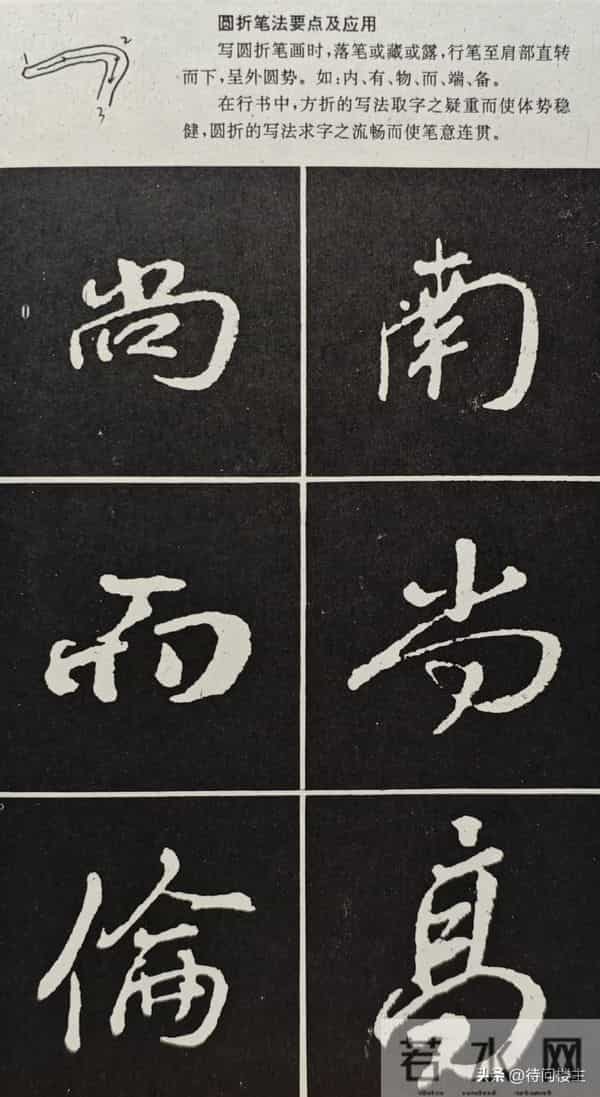 圆折笔法要点及应用
写圆折笔画时，落笔或藏或露，行笔至肩部直转
而下，呈外圆势。如：内、有、物、而、端、备。
在行书中，方折的写法取字之疑重而使体势稳
健，圆折的写法求字之流畅而使笔意连贯。
1 2
3
尚 南
而 尚
倫 高
若水网
头条@待问楼主